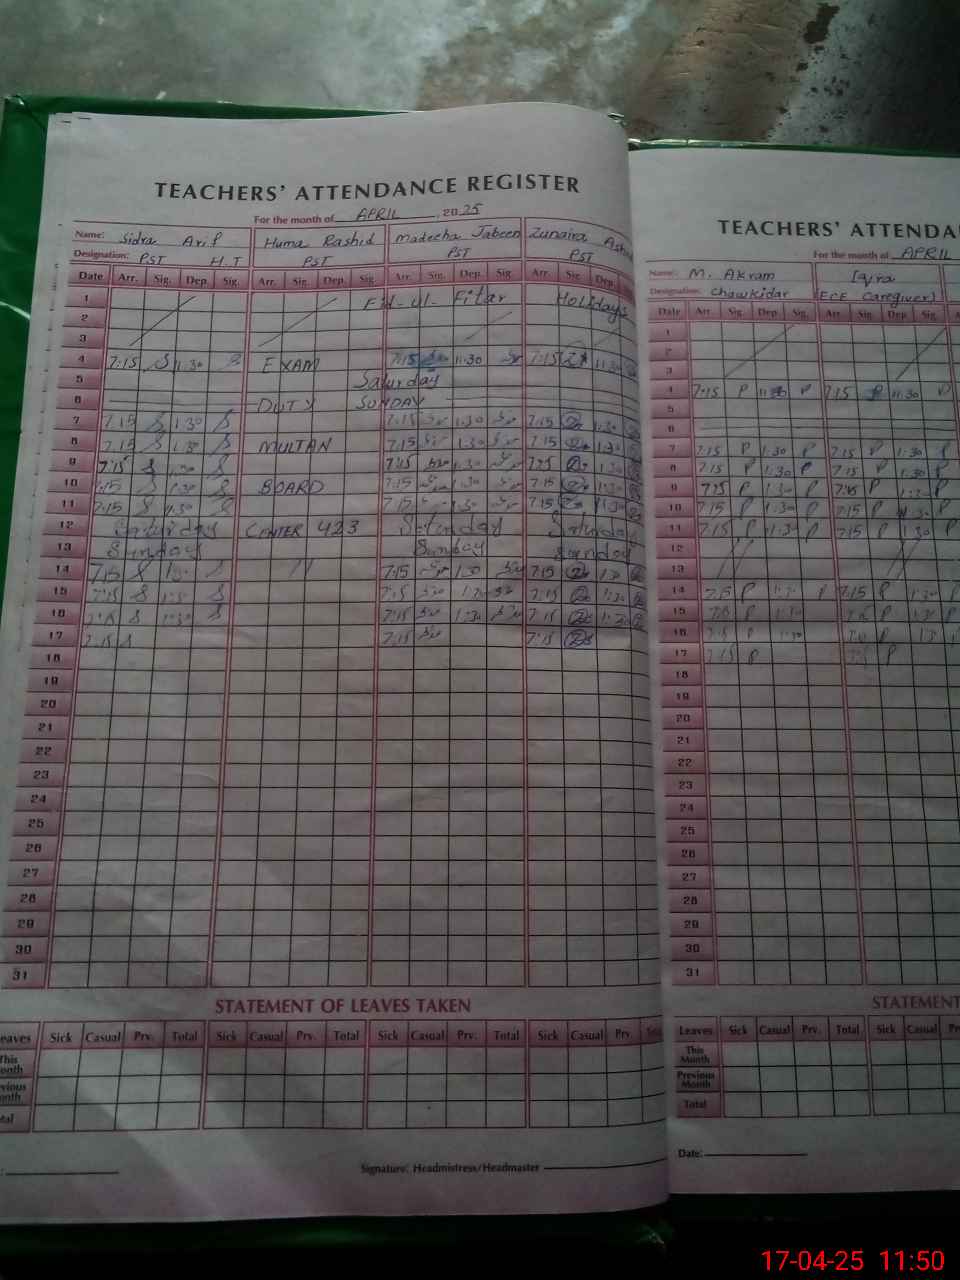 TEACHERS' ATTENDANCE REGISTER
For the month of APRIL, 2025
Name: Sidra Arif Huma Rashid Madeeha Jabeen Zunaira
Designation: PST H.T PST PST PST
Date Arr. Sig. Dep. Sig. Arr. Sig. Dep. Sig. Arr. Sig. Dep. Sig. Arr. Sig. Dep.
1 Eid-ul-Fitar Holidays
2
3
4 7:15 S 11:30 S EXAM 7:15 11:30 7:15 11:30
5 Saturday
6 DUTY SUNDAY
7 7:15 S 1:30 S 7:15 1:30 7:15 1:30
8 7:15 S 1:30 S MULTAN 7:15 1:30 7:15 1:30
9 7:15 S 1:30 S 7:15 1:30 7:15 1:30
10 7:15 S 1:30 S BOARD 7:15 1:30 7:15 1:30
11 7:15 S 1:30 S 7:15 1:30 7:15 1:30
12 Saturday CENTER 423 Saturday Saturday
13 Sunday Sunday Sunday
14 7:15 S 1:30 S 7:15 1:30 7:15 1:30
15 7:15 S 1:30 S 7:15 1:30 7:15 1:30
16 7:15 S 1:30 S 7:15 1:30 7:15 1:30
17 7:15 S 7:15 7:15
18
19
20
21
22
23
24
25
26
27
28
29
30
31
STATEMENT OF LEAVES TAKEN
Leaves Sick Casual Prv. Total Sick Casual Prv. Total Sick Casual Prv. Total Sick Casual Prv.
This Month
Previous Month
Total
Signature: Headmistress/Headmaster
TEACHERS' ATTENDA
For the month of APRIL
Name: M. Akram Iqra
Designation: Chawkidar (ECE Caregiver)
Date Arr. Sig. Dep. Sig. Arr. Sig. Dep. Sig.
1
2
3
4 7:15 P 11:30 P 7:15 P 11:30 P
5
6
7 7:15 P 1:30 P 7:15 P 1:30 P
8 7:15 P 1:30 P 7:15 P 1:30 P
9 7:15 P 1:30 P 7:15 P 1:30 P
10 7:15 P 1:30 P 7:15 P 1:30 P
11 7:15 P 1:30 P 7:15 P 1:30 P
12
13
14 7:15 P 1:30 P 7:15 P 1:30
15 7:15 P 1:30 7:15 P 1:30 P
16 7:15 P 1:30 7:15 P 1:30
17 7:15 P 7:15 P
18
19
20
21
22
23
24
25
26
27
28
29
30
31
STATEMENT
Leaves Sick Casual Prv. Total Sick Casual
This Month
Previous Month
Total
Date:
17-04-25 11:50